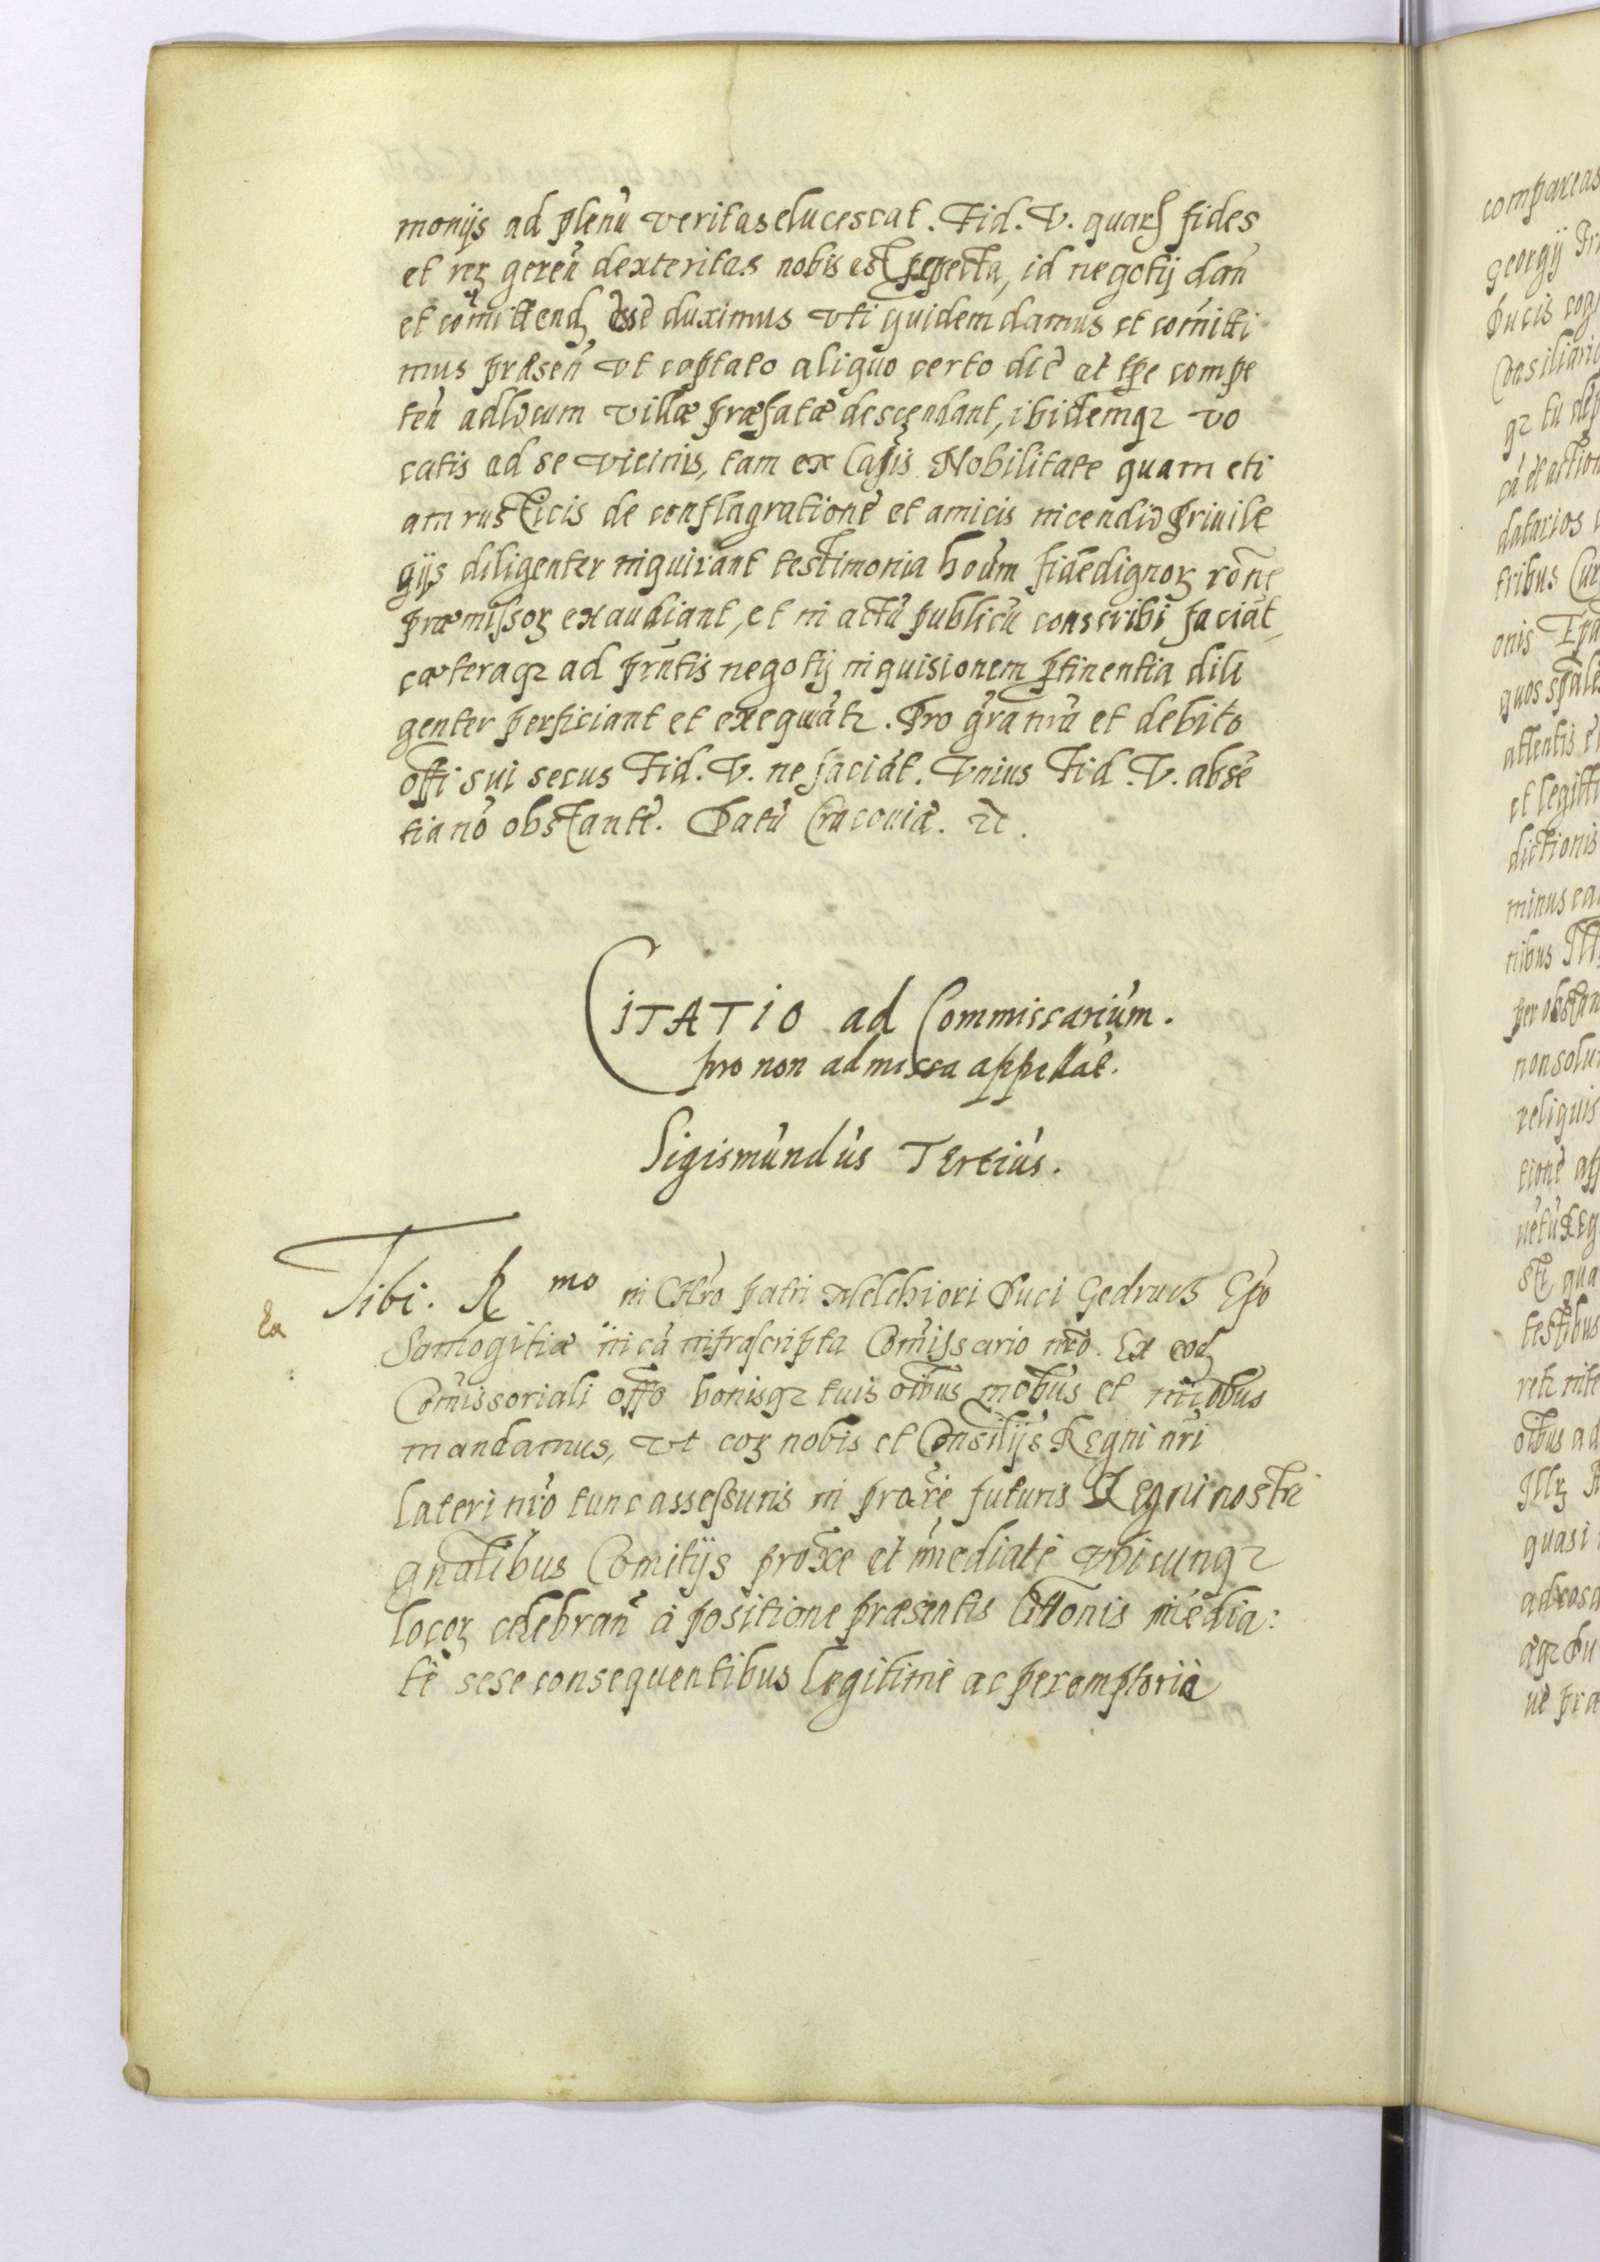 monijs ad plenũ veritas elucescat. Fid. V. quarũ fides
et rerꝫ gereñ dexteritas nobis est perspecta, id negotij dañ
et com̃ittendꝫ esse duximus vti quidem damus et com̃itti
mus præseñ vt captato aliquo certo die at tp̃e compe
teñ ad locum villæ præfatæ descendant, ibidemqꝫ vo
catis ad se vicinis, tam ex Nobilitate quam eti
am rusticis de conflagratione et amicis incendio priuile
gijs diligenter inquirant testimonia hoũm fidedignorꝫ rõne
præmissorꝫ exaudiant, et in actũ publicũ conscribi faciãt,
cæteraqꝫ ad prñtis negotij inquisionem ꝑtinentia dili
genter perficiant et exequãtꝫ. Pro gr̃a nr̃a et debito
offi sui secus Fid. V. ne faciãt. Vnius Fid. V. absẽ
tia nõ obstante. Datũ Cracouiæ. ꝛc.
CITATIO ad Commissarium.
pro non admissa appellat̃.
Sigismundus Tertius.
Tibi. R mo in Chro patri Melchiori Duci Gedrucs Ep̃o
Ea
Samogitiæ in cã infrascripta Com̃issario nr̃o. Ex eodꝫ
Com̃issoriali offo bonisqꝫ tuis oĩbus mobus et
mandamus, vt corꝫ nobis et Consilijs Regni nr̃i
lateri nr̃o tunc assessuris in futuris Regni nostri
gnãlibus Comitijs proxe et im̃ediatè vbicunqꝫ
locorꝫ celebrañ à positione præsentis media:
tè sese consequentibus legitimè ac peremptoriè
compareas
georgij
Ducis
Consiliari
qꝫ tu
datarios
tribus
onis
quos
attentis
et legitti
dictionis
minus
nibus
per obstan
non solu
reliquis
tione
testibus
quasi